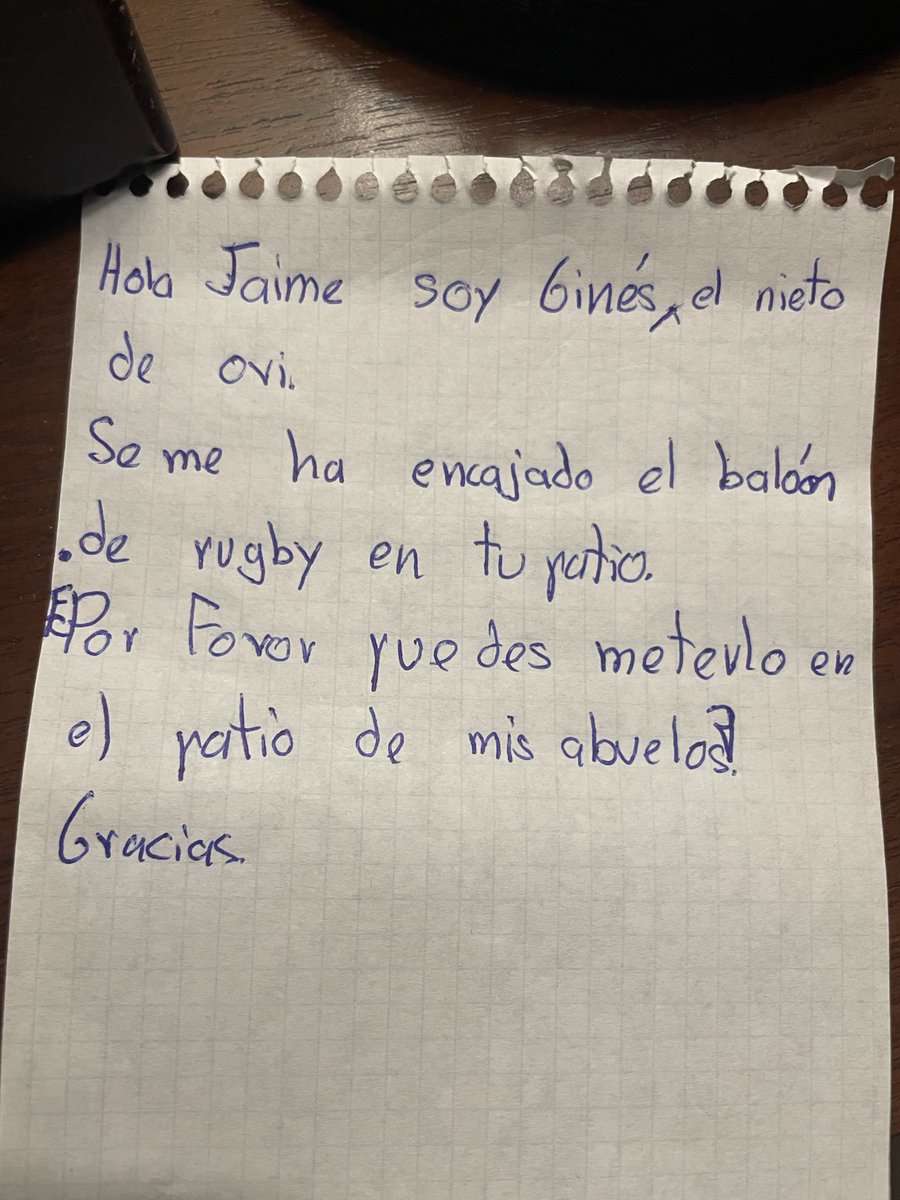 Hola Jaime soy Ginés, el nieto
de ovi.
Se me ha encajado el balón
de rugby en tu patio.
Por Favor puedes meterlo en
el patio de mis abuelos?
Gracias.